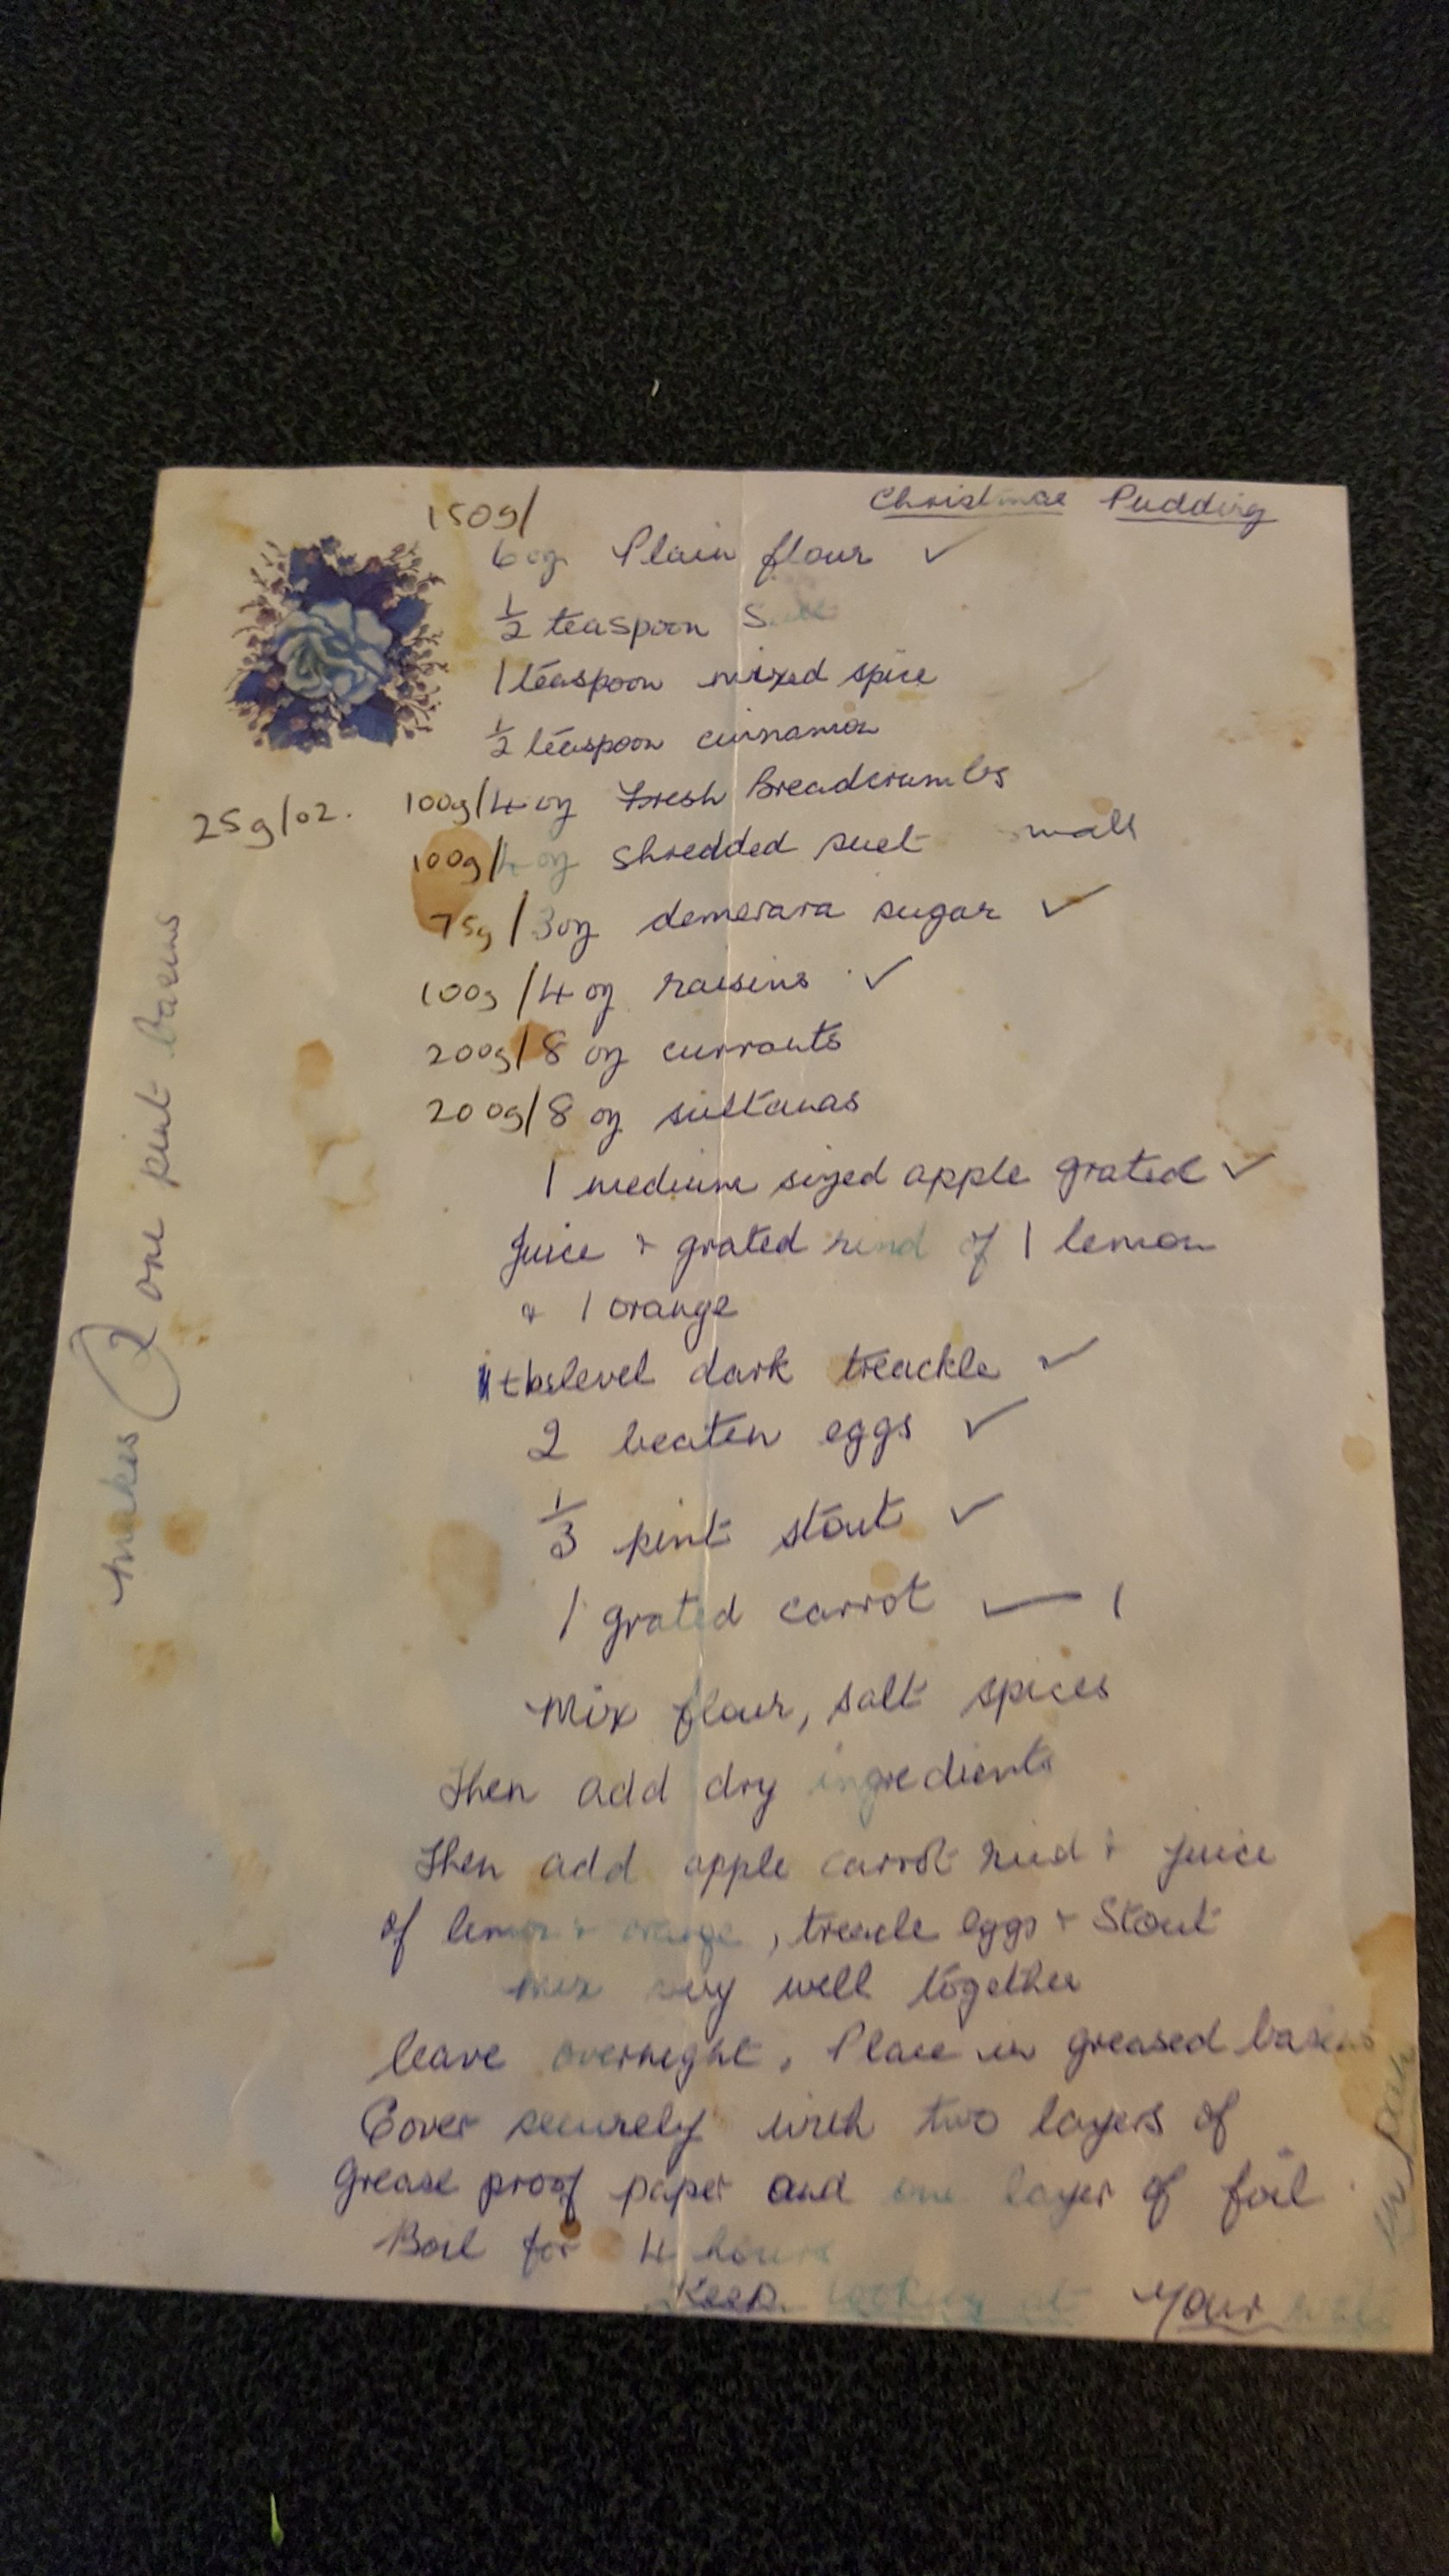 Christmas Pudding
150g/
6 oz Plain flour ✓
½ teaspoon Salt
1 teaspoon mixed spice
½ teaspoon cinnamon
25g/oz. 100g/4 oz Fresh Breadcrumbs
100g/4 oz shredded suet small
75g/3oz demerara sugar ✓
100g/4 oz raisins ✓
200g/8 oz currants
200g/8 oz sultanas
1 medium sized apple grated ✓
Juice + grated rind of 1 lemon
+ 1 orange
1 tbslevel dark treackle ✓
2 beaten eggs ✓
⅓ pint stout ✓
1 grated carrot ✓ 1
Mix flour, salt spices
Then add dry ingredients
Then add apple carrot rind + juice
of lemon + orange, treacle eggs + Stout
mix very well together
leave overnight, Place in greased basins
Cover securely with two layers of
Grease proof paper and one layer of foil
Boil for 4 hours
Keep looking at Your
makes 2 one pint basins